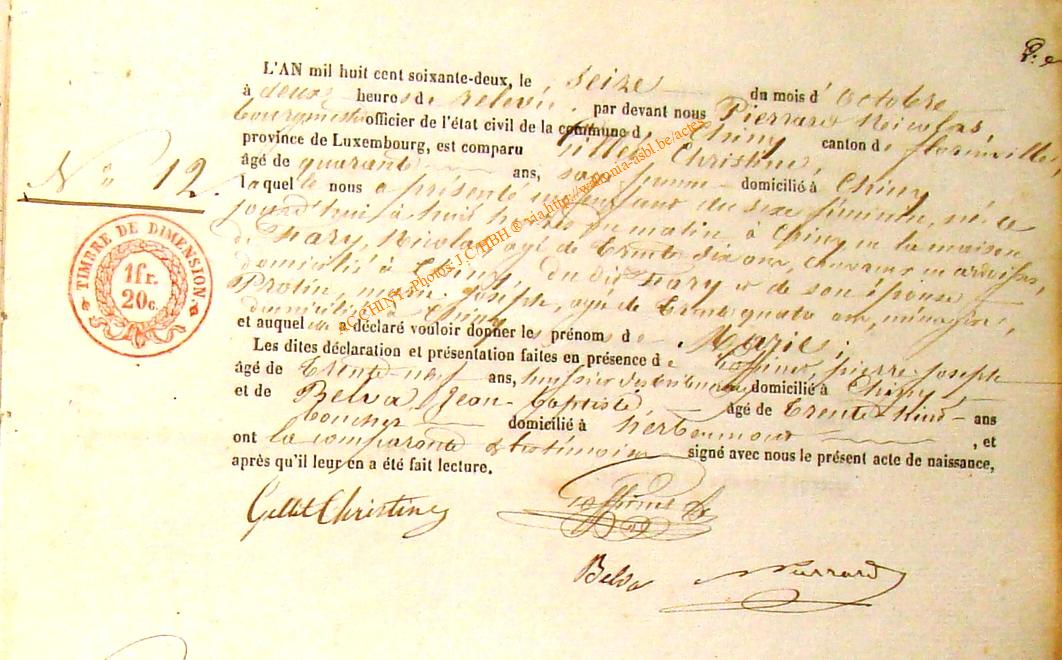 L'AN mil huit cent soixante-deux, le seize du mois d'octobre
à deux heures de relevée, par devant nous Pierrard Nicolas,
bourgmestre officier de l'état civil de la commune de Chiny canton de florenville,
province de Luxembourg, est comparu Gillet Christine,
âgé de quarante ans, sage femme domicilié à Chiny
laquelle nous a présenté un enfant du sexe féminin, né ce
jourd'hui à huit heures du matin à Chiny en la maison
de Fary, Nicolas, agé de trente six ans,
domicilié à Chiny, du dit Fary et de son épouse
Protin, marie Joseph, agé de trente quatre ans, ménagère,
domiciliée à Chiny
et auquel a déclaré vouloir donner le prénom de Marie;
Les dites déclaration et présentation faites en présence de Goffinet, pierre-joseph
âgé de trente-neuf ans, domicilié à Chiny
et de Belva, Jean-baptiste, âgé de trente huit ans
boucher domicilié à herbeumont, et
ont la comparante et témoins signé avec nous le présent acte de naissance,
après qu'il leur en a été fait lecture.
N° 12.
TIMBRE DE DIMENSION.
1 fr.
20 c.
ACCHINY - Photos: J.C/HBH ® via http://wallonia-asbl.be/actes
Gillet Christine
Goffinet
Belva
Pierrard